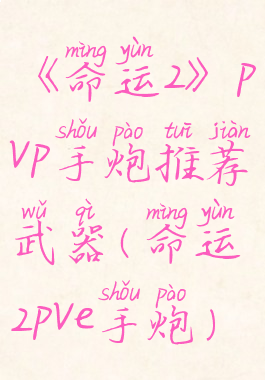 mìng yùn
《命运2》P
shǒu pào tuī jiàn
VP手炮推荐
wǔ qì mìng yùn
武器(命运
shǒu pào
2pve手炮)